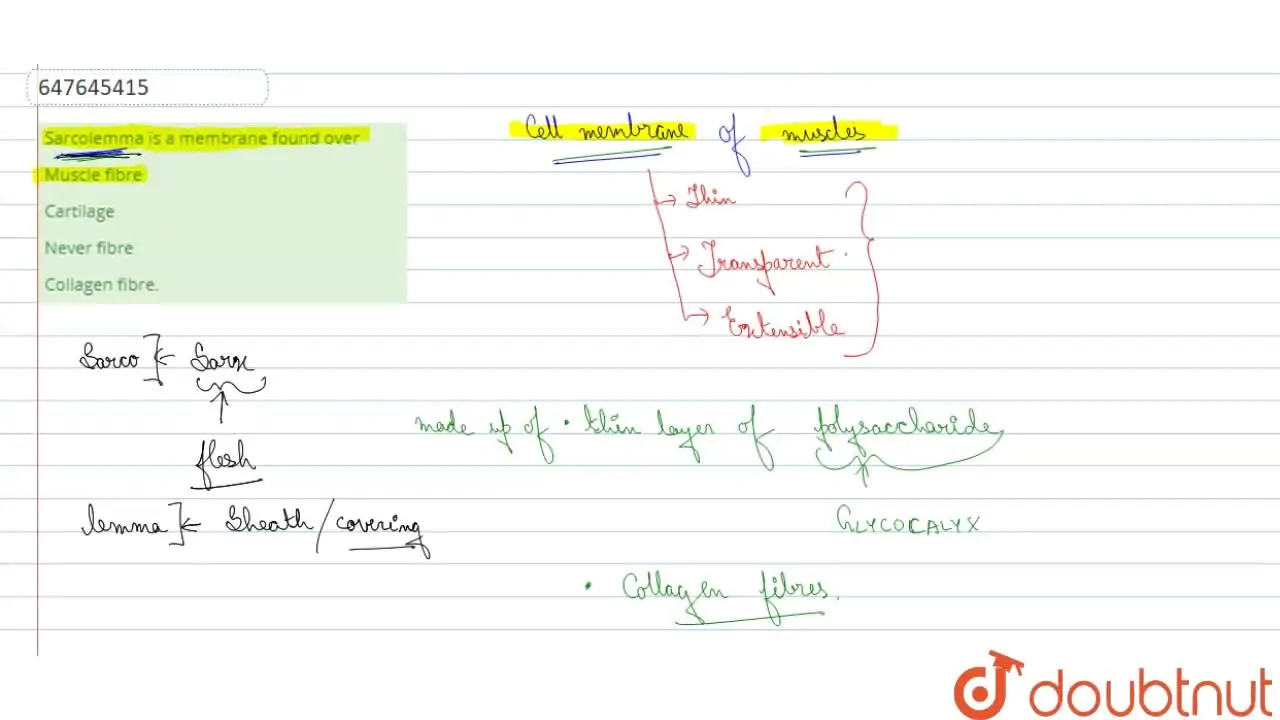 647645415
Sarcolemma is a membrane found over
Muscle fibre
Cartilage
Never fibre
Collagen fibre.
Cell membrane of muscles
→ Thin
→ Transparent
→ Extensible
Sarco ← Sarx
flesh
lemma ← Sheath / covering
made up of • thin layer of polysaccharide
GLYCOCALYX
• Collagen fibres.
doubtnut